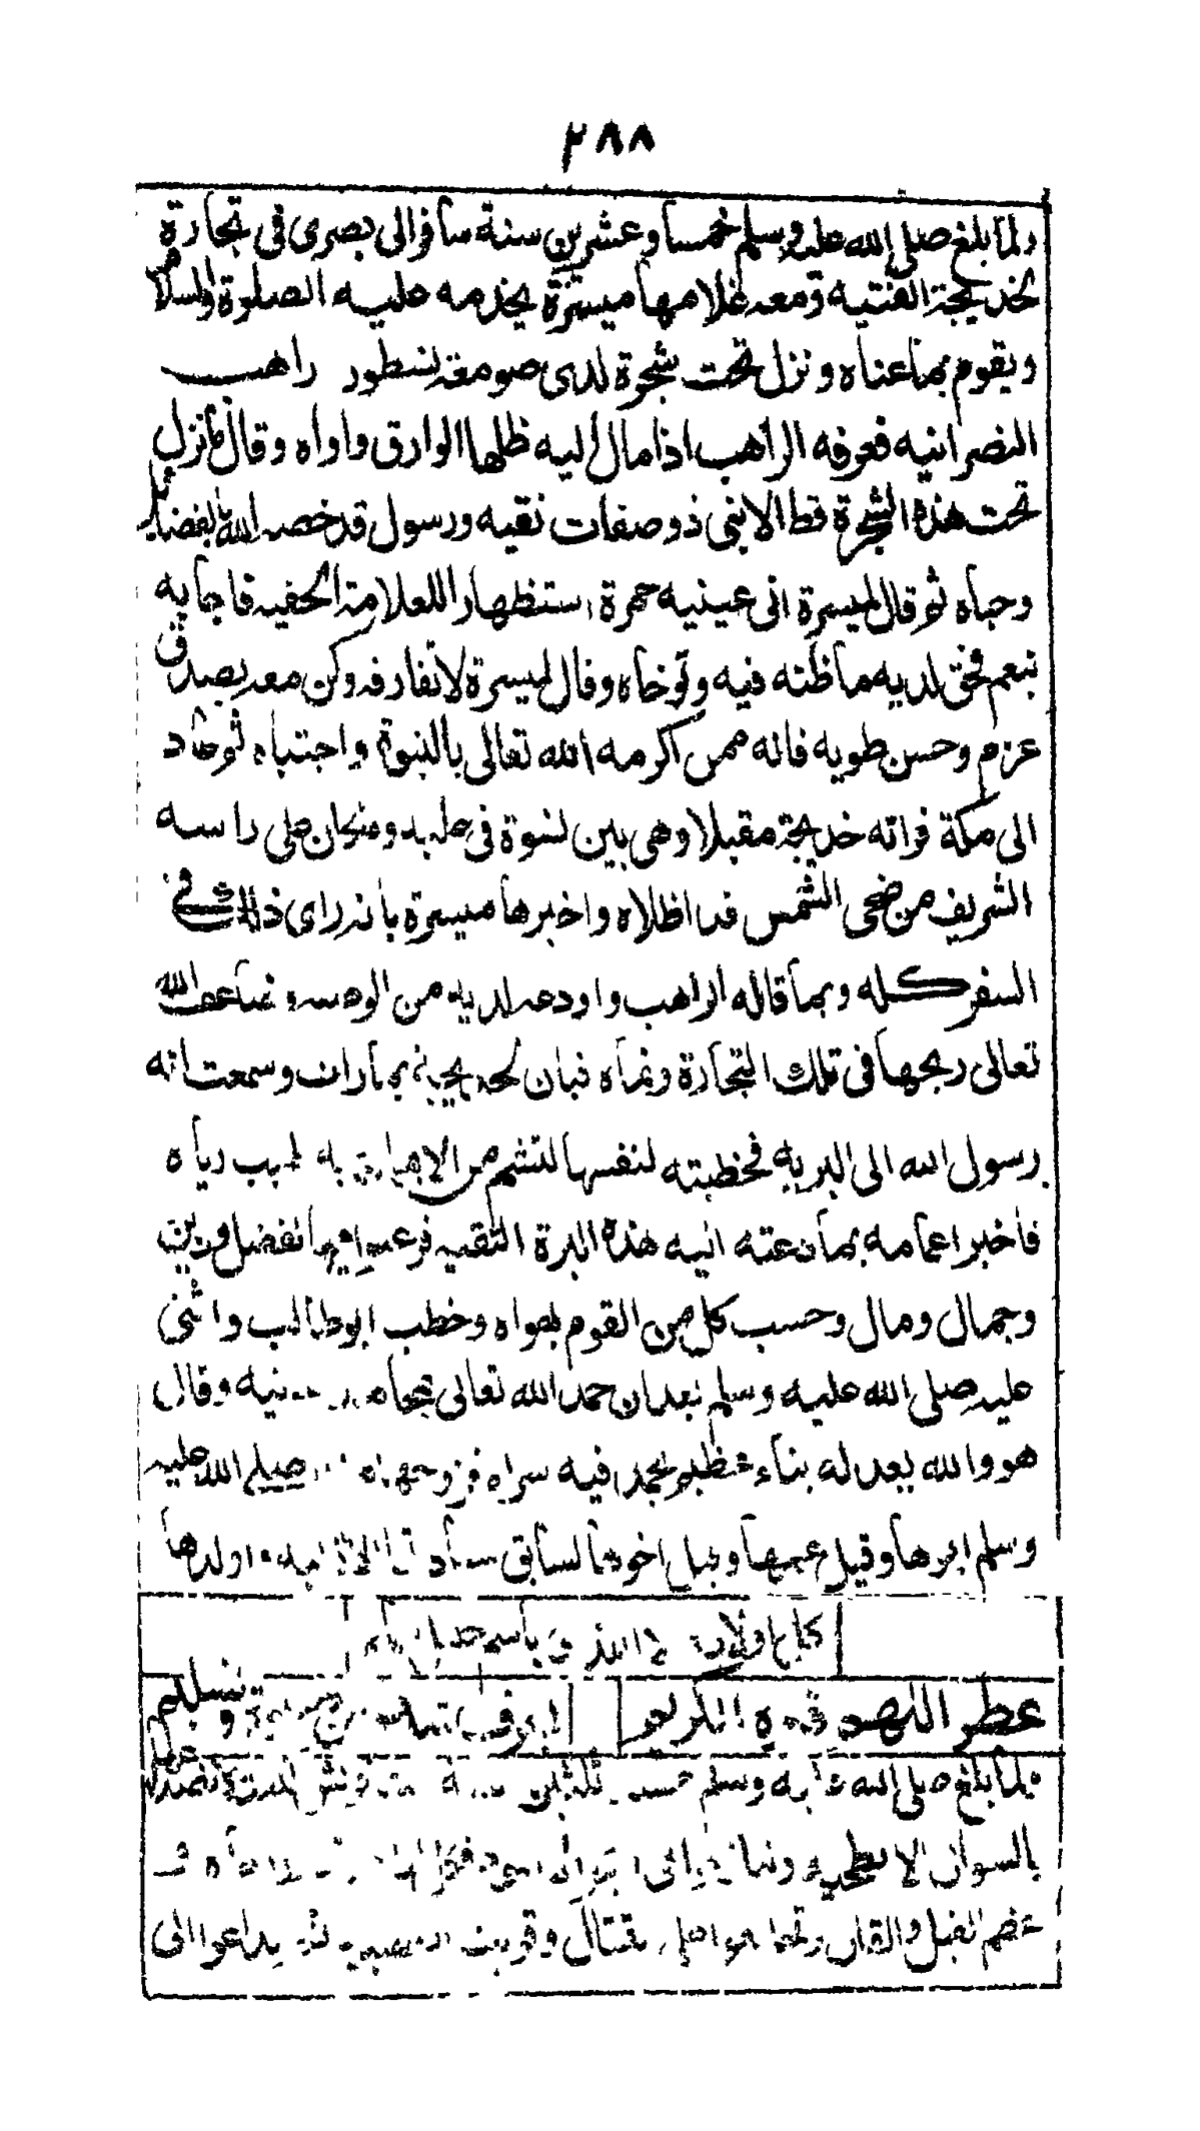 ٢٨٨
ولما بلغ صلى الله عليه وسلم خمسا وعشرين سنة سافر الى بصرى فى تجارة
لخديجة الفتيه ومعه غلامها ميسرة يخدمه عليه الصلوة والسلام
ويقوم بما عناه ونزل تحت شجرة لدى صومعة نسطور راهب
النصرانيه فعرفه الراهب اذا مال اليه ظلها الوارق واواه وقال ما نزل
تحت هذه الشجرة قط الا نبى ذو صفات نقيه ورسول قد خصه الله بالفضائل
وحباه ثم قال لميسرة افى عينيه حمرة استظهار اللعلامة الخفيه فاجابه
بنعم فحق لديه ما ظنه فيه وتوخاه وقال لميسرة لا تفارقه وكن معه بصدق
عزم وحسن طويه فانه ممن اكرمه الله تعالى بالنبوة واجتباه ثم عاد
الى مكة فراته خديجة مقبلا وهى بين نسوة فى عليه وملكان على راسه
الشريف من ضحى الشمس قد اظلاه واخبرها ميسرة بانه راى ذالك فى
السفر كله وبما قاله الراهب واودعه لديه من الوصيه وضاعف الله
تعالى ربحها فى تلك التجارة ونماه فبان لخديجة بما رات وسمعت انه
رسول الله الى البريه فخطبته لنفسها لتشم من الايمان به طيب رياه
فاخبر اعمامه بما دعته اليه هذه البرة التقيه فرغبوا فيها لفضل ودين
وجمال ومال وحسب كل من القوم يهواه وخطب ابو طالب واثنى
عليه صلى الله عليه وسلم بعد ان حمد الله تعالى بمحامد سنيه وقال
هو والله بعد له بناء عظيم يحمد فيه سراه فزوجها منه صلى الله عليه
وسلم ابوها وقيل عمها وقيل اخوها لسابق سعادتها الازليه واولدها
كل اولاده الا الذى باسم الخليل سماه
عطر اللهم قبره الكريم بعرف شذى من صلوة وتسليم
ولما بلغ صلى الله عليه وسلم خمسا وثلثين سنة بنت قريش الكعبة لانصداعها
بالسيول الابطحيه وتنازعوا فى رفع الحجر
عظم القيل والقال وتحالفوا على القتال وقويت العصبيه ثم تداعوا الى